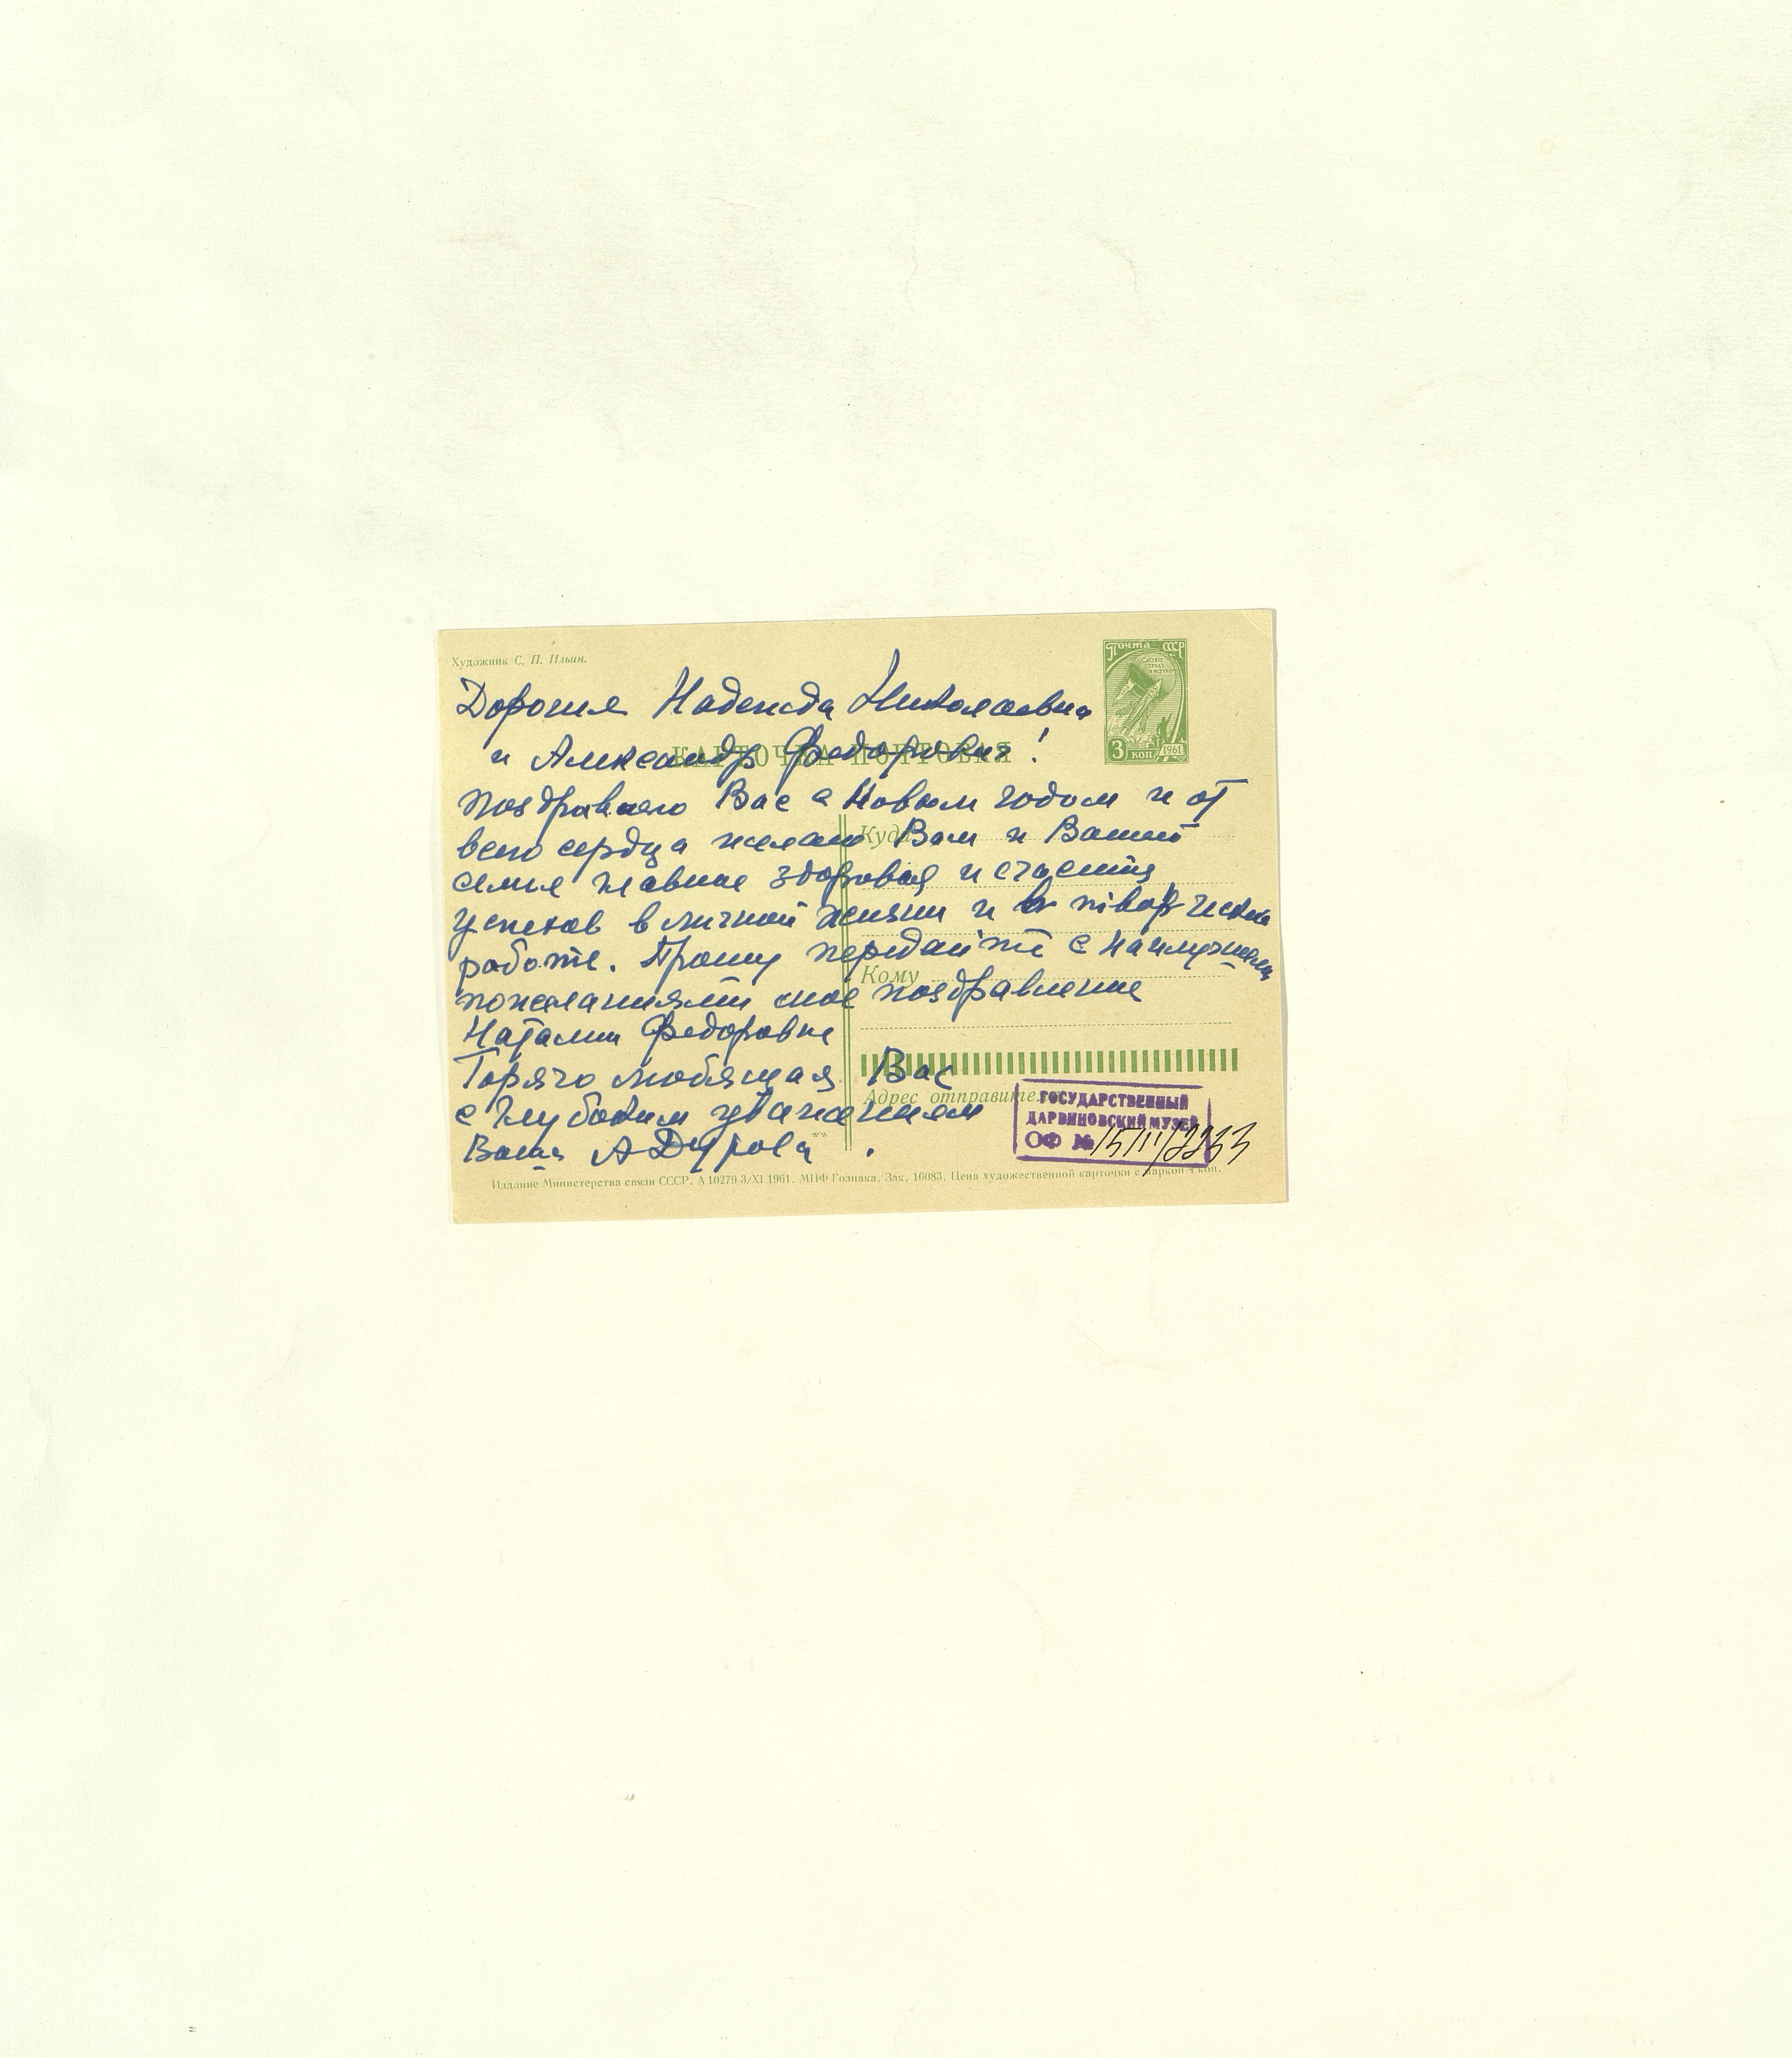 Художник С. П. Ильин.
Почта СССР
3 коп 1961
КАРТОЧКА ПОЧТОВАЯ
Дорогие Надежда Николаевна
и Александр Федорович!
поздравляю Вас с Новым годом и от
всего сердца желаю Вам и Вашей
семье главное здоровья и счастия
успехов в личной жизни и в творческой
работе. Прошу передайте с наилучшими
пожеланиями мое поздравление
Наталии Федоровне
Горячо любящая Вас
с глубоким уважением
Ваша А Дурова.
Куда
Кому
Адрес отправите
ГОСУДАРСТВЕННЫЙ
ДАРВИНОВСКИЙ МУЗЕЙ
ОФ №
Издание Министерства связи СССР. А 10279 3/XI 1961. МПФ Гознака. Зак. 16083. Цена художественной карточки с маркой 4 коп.